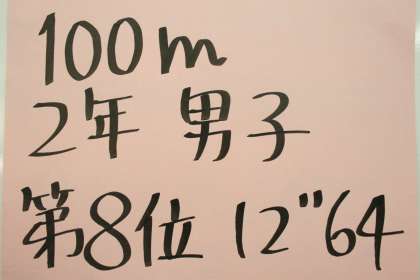 100m
2年 男子
第8位 12"64